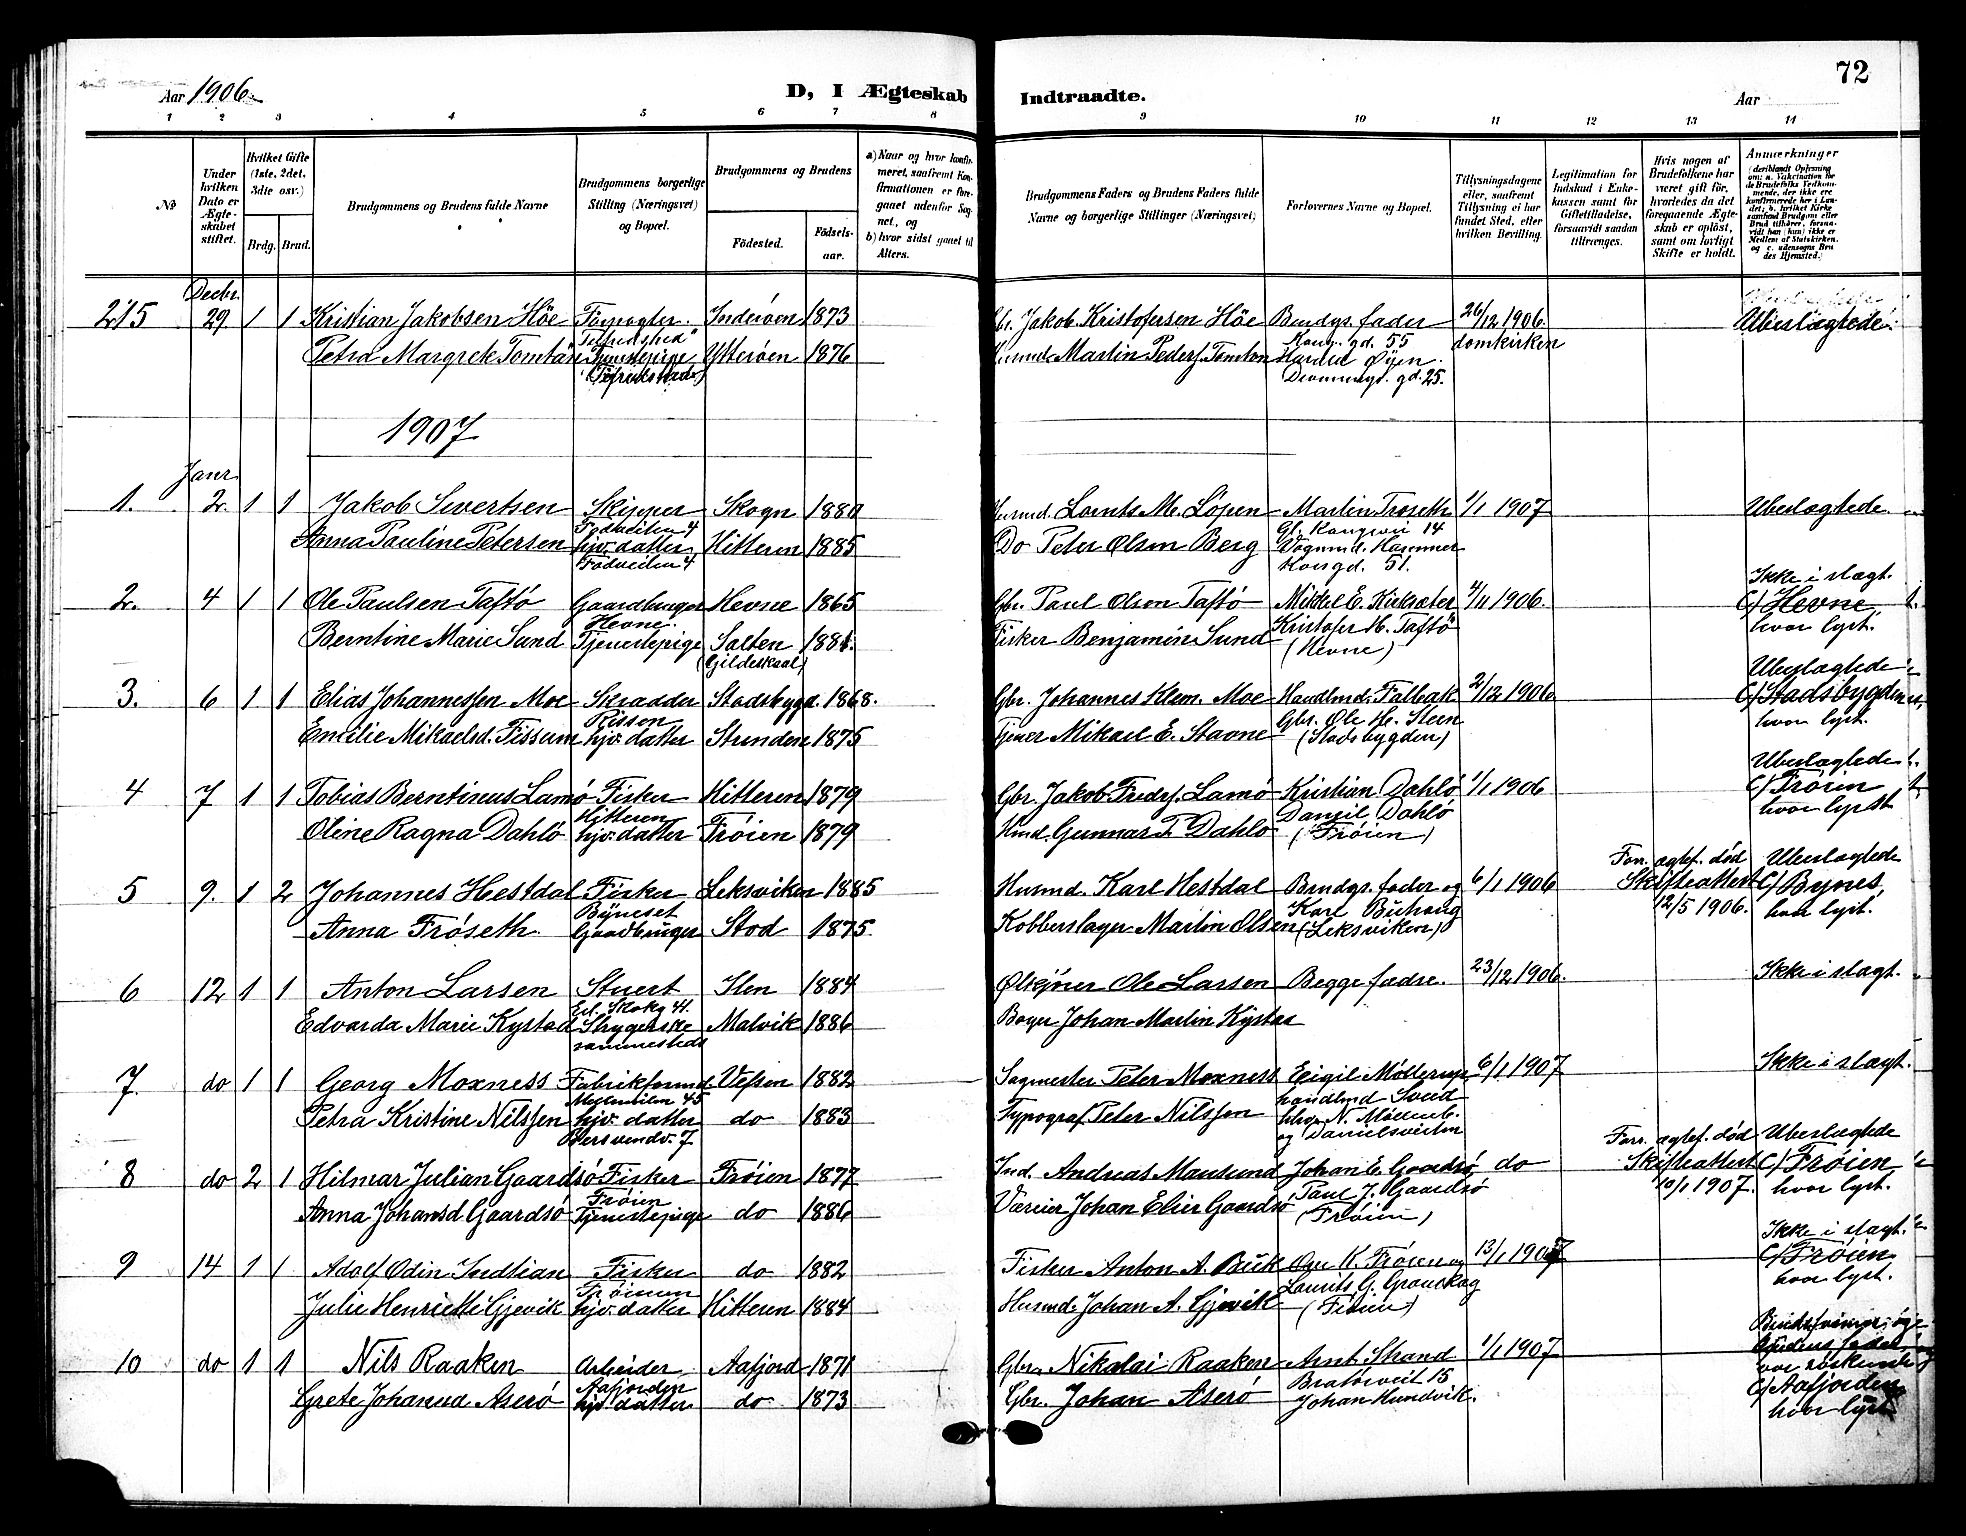 72
Aar 1906.
D, I Ægteskab Indtraadte.
Aar
1 2 3 4 5 6 7 8 9 10 11 12 13 14
No
Under hvilken Dato er Ægteskabet stiftet.
Hvilket Gifte (1ste, 2det, 3die osv.)
Brdg. Brud.
Brudgommens og Brudens fulde Navne
Brudgommens borgerlige Stilling (Næringsvei) og Bopæl.
Brudgommens og Brudens
Fødested.
Fødsels-aar.
a) Naar og hvor konfirmeret, saafremt Konfirmationen er foregaaet udenfor Sognet, og
b) hvor sidst gaaet til Alters.
Brudgommens Faders og Brudens Faders fulde Navne og borgerlige Stillinger (Næringsvei)
Forlovernes Navne og Bopæl.
Tillysningsdagene eller, saafremt Tillysning ei har fundet Sted, efter hvilken Bevilling.
Legitimation for Indskud i Enkekassen samt for Giftetilladelse, forsaavidt saadan tiltrænges.
Hvis nogen af Brudefolkene har været gift før, hvorledes da det foregaaende Ægteskab er opløst, samt om lovligt Skifte er holdt.
Anmærkninger
215 Decbr. 29. 1 1 Kristian Jakobsen Höe Inderøen 1873 Gbr. Jakob Kristofersen Höe Brudgs. fader 26/12 1906. Ubeslægtede.
Kong. gd. 55
Petra Margrete Tomtan Tjenestepige Ytterøen 1876 Husmd. Martin Peders. Tomtan Harald Øyen. domkirken
Dronnings. gd. 25.
1907
Janr.
1. 2. 1 1 Jakob Sivertsen Skipper Skogn 1880 Husmd. M. Löpen Martin Trøseth 1/1 1907 Ubeslægtede.
Fodveiten 4 Gl. Kongevei 14
Anna Pauline Petersen hjv. datter Hitteren 1885 Do Peter Olsen Berg
Fodveiten 4 Kongd. 51.
2. 4 1 1 Ole Paulsen Taftö Gaardbruger Hevne 1865 Gbr. Paul Olson Taftö Mikkel E. Kirksæter 4/11 1906. Ikke i slægt.
Hevne. Cf Hevne,
Berntine Marie Sund Tjenestepige Salten 1881. Fisker Benjamin Sund Kristofer M. Taftö hvor lyst.
(Gildeskaal) (Hevne)
3. 6 1 1 Elias Johannessen Moe Skrædder Stadsbygd. 1868. Gbr. Johannes Klem. Moe Handlmd. Falbak 2/12 1906 Ubeslægtede
Rissen Gbr. Ole H. Steen Cf Stadsbygden,
Emelie Mikaelsd. Fissum hjv. datter Strinden 1875 Tjener Mikael E. Stavne (Stadsbygden) hvor lyst.
4 7 1 1 Tobias Berntinus Lamö Fisker Hitteren 1879 Gbr. Jakob Fredr. Lamö Kristian Dahlö 1/1 1906 Ubeslægtede
Hitteren Daniel Dahlö Cf Frøien
Oline Ragna Dahlö hjv. datter Frøien 1879 Hmd. Gunnar T. Dahlö (Frøien) hvor lyst
5 9. 1 2 Johannes Hestdal Fisker Leksviken 1885 Husmd. Karl Hestdal Brudgs. fader og 6/1 1906 Forr. ægtef. død Skifteattest 12/5 1906. Ubeslægtede
Byneset Karl Buhaug Cf Bynes,
Anna Fröseth Gaardbruger Stod 1875. Kobberslager Martin Olsen (Leksviken) hvor lyst.
6 12 1 1 Anton Larsen Stuert Ilen 1884 Ole Larsen Begge fædre. 23/12 1906. Ikke i slægt.
Edvarda Marie Kystad Strygerske Malvik 1886 Johan Martin Kystad
sammesteds
7. do 1 1 Georg Moxness Fabrikformd. Vefsen 1882 Sagmester Peter Moxness Eigil Møllerup 6/1 1907 Ikke i slægt.
Petra Kristine Nilssen hjv. datter do 1883 Typograf Peter Nilssen
og Danielsveiten
8 do 2 1 Hilmar Julian Gaardsö Fisker Frøien 1877 Ind. Andreas Mausund Johan E. Gaardsö do Forr. ægtef. død Skifteattest 10/1 1907. Ubeslægtede
Frøien Paul J. Gaardsö Cf Frøien,
Anna Johansd Gaardsö Tjenestepige do 1886 Væreier Johan Elier Gaardsö (Frøien) hvor lyst.
9 14 1 1 Adolf Odin Indtian Fisker do 1882 Fisker Anton A. Buk K. Frøien og 13/1 1907 Ikke i slægt.
Frøien Laurits G. Cf Frøien,
Julie Henriette Gjevik hjv. datter Hitteren 1884 Husmd. Johan A. Gjevik hvor lyst.
10 do 1 1 Nils Raaken Arbeider Aafjord 1871 Gbr. Nikolai Raaken Arnt Strand 1/1 1907
Aafjorden Bratørveit 15
Grete Johanna Aserö hjv. datter do 1873 Gbr. Johan Aserö Johan Hundvik.
Cf Aafjorden
hvor lyst